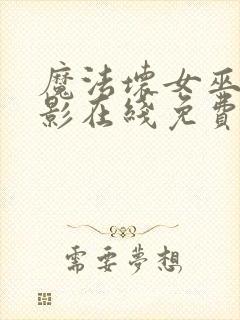 魔法壞女巫
影在綫免費
需要夢想